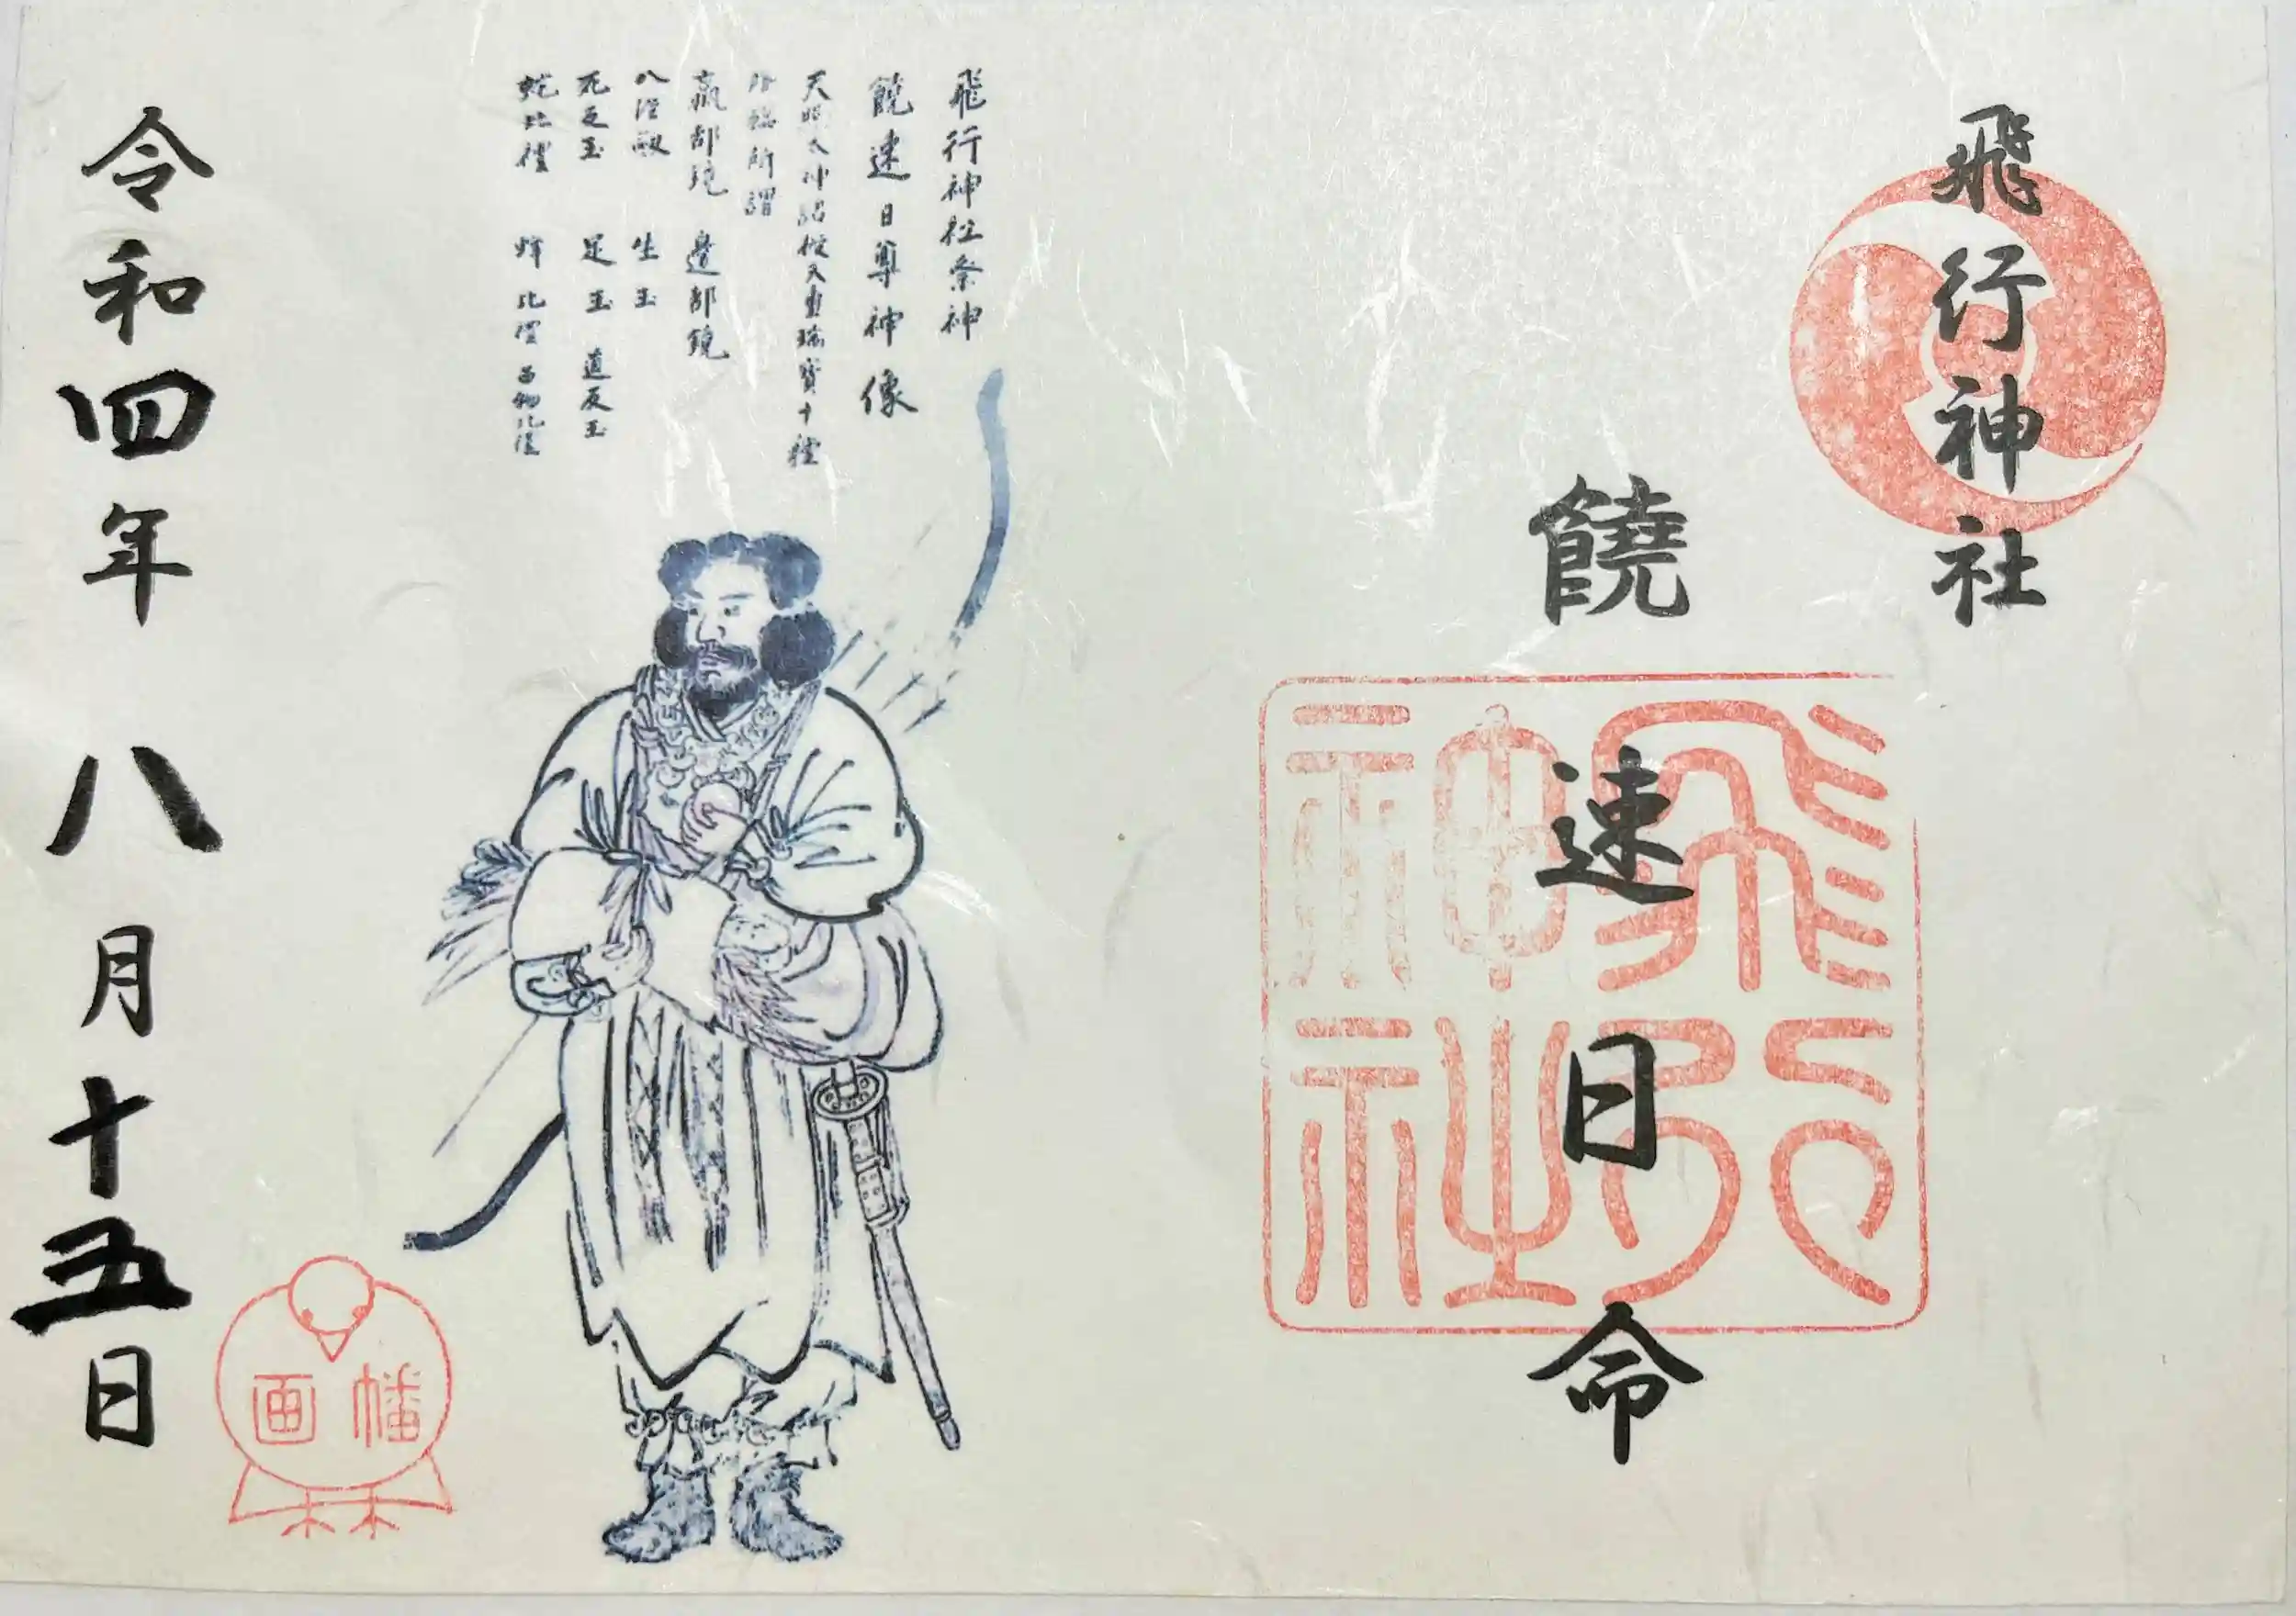 飛行神社
饒速日命
飛行
神社
飛行神社祭神
饒速日尊神像
天照大神詔授天璽瑞寶十種
所謂
瀛都鏡 邊都鏡
八握剱 生玉
死反玉 足玉 道反玉
蛇比禮 蜂比禮 品物比禮
幡画
令和四年八月十五日